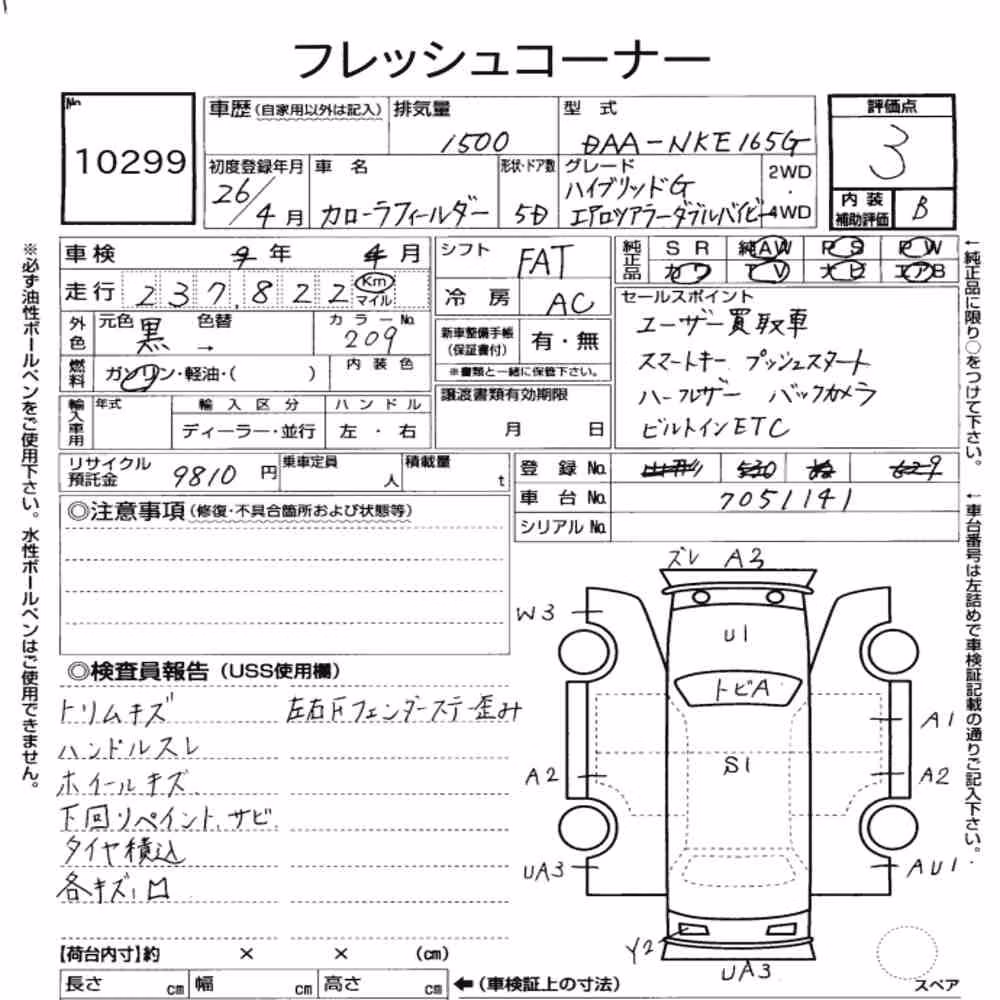 フレッシュコーナー
No.
10299
車歴 (自家用以外は記入)
排気量
1500
型 式
DAA-NKE165G
評価点
3
初度登録年月
26/4月
車 名
カローラフィールダー
形状・ドア数
5D
グレード
ハイブリッドG
エアロツアラーダブルバイビー
2WD
・
4WD
内 装
補助評価
B
車検 年 月
走行 237,822 Km マイル
シフト
FAT
冷 房 AC
純正品
SR 純AW PS PW
カワ TV ナビ エアB
外色
元色 黒 色替 →
カラーNo.
209
新車整備手帳
(保証書付)
有・無
※書類と一緒に保管下さい。
燃料
ガソリン・軽油・( )
内装色
輸入車用
年式
輸入区分
ディーラー・並行
ハンドル
左・右
譲渡書類有効期限
月 日
セールスポイント
ユーザー買取車
スマートキー プッシュスタート
ハーフレザー バックカメラ
ビルトインETC
リサイクル
預託金
9810 円
乗車定員
人
積載量
t
登録No.
車台No. 7051141
シリアルNo.
◎注意事項 (修復・不具合箇所および状態等)
◎検査員報告 (USS使用欄)
トリムキズ
左右Fフェンダーステー歪み
ハンドルスレ
ホイールキズ.
下回リペイント.サビ.
タイヤ積込
各キズ,凹
ズレ A3
W3
U1
トビA
A1
S1
A2
A2
UA3
AU1
Y2
UA3
スペア
【荷台内寸】約 × × (cm)
長さ cm 幅 cm 高さ cm
←(車検証上の寸法)
※必ず油性ボールペンをご使用下さい。水性ボールペンはご使用できません。
←純正品に限り○をつけて下さい。
←車台番号は左詰めで車検証記載の通りご記入下さい。